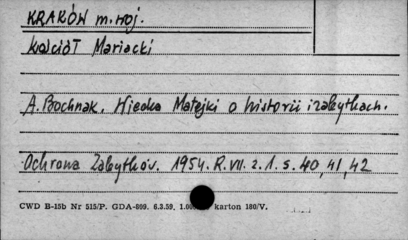 KRAKÓW m. woj.
Kościół Mariacki
A. Bochnak. Wiedza Matejki o historii i zabytkach.
Ochrona Zabytków. 1954. R. VII. z. 1. s. 40, 41, 42
CWD B-15b Nr 515/P. GDA-809. 6.3.59. karton 180/V.